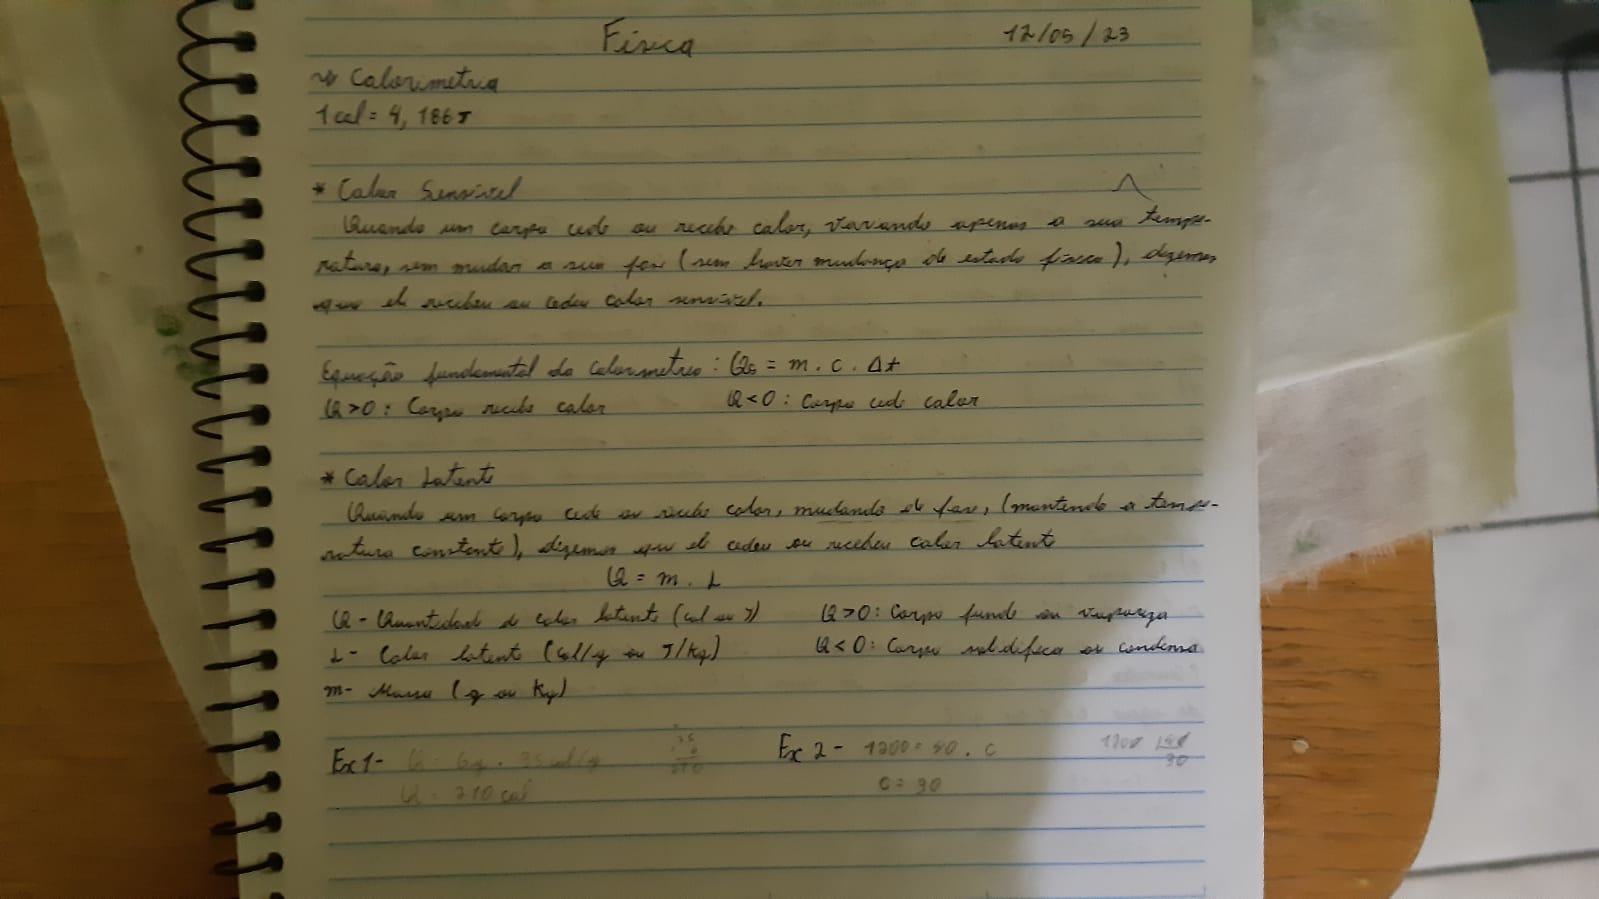 Física 12/05/23
~> Calorimetria
1 cal = 4,186 J
* Calor Sensível
Quando um corpo cede ou recebe calor, variando apenas a sua tempe-
ratura, sem mudar a sua fase (sem haver mudança de estado físico), dizemos
que ele recebeu ou cedeu calor sensível.
Equação fundamental da calorimetria: Qs = m . c . Δt
Q > 0 : Corpo recebe calor Q < 0 : Corpo cede calor
* Calor Latente
Quando um corpo cede ou recebe calor, mudando de fase, (mantendo a tempe-
ratura constante), dizemos que ele cedeu ou recebeu calor latente
Q = m . L
Q - Quantidade de calor latente (cal ou J) Q > 0 : Corpo funde ou vaporiza
L - Calor latente (cal/g ou J/Kg) Q < 0 : Corpo solidifica ou condensa
m - Massa (g ou Kg)
Ex 1 - Q = 6g . 35 cal/g Ex 2 -
Q = 210 cal